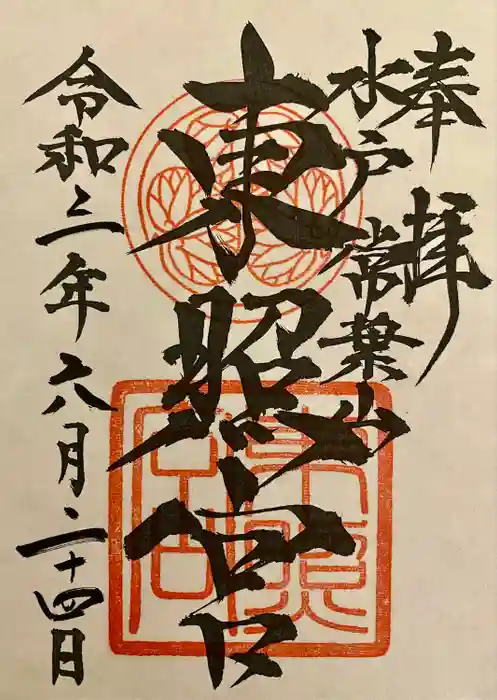 奉拝
水戸常葉山
東照宮
令和三年六月二十四日